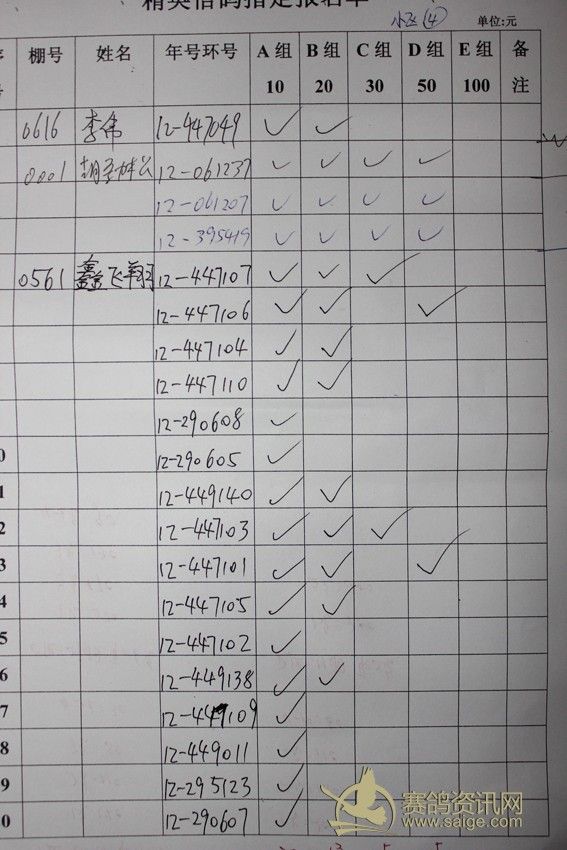 精英倍码指定报名单
小飞 (4) 单位:元
棚号 姓名 年号环号 A 组 10 B 组 20 C 组 30 D 组 50 E 组 100 备注
0616 李伟 12-447049 ✓ ✓
0001 12-061237 ✓ ✓ ✓ ✓
12-061207 ✓ ✓ ✓ ✓
12-395419 ✓ ✓ ✓ ✓
0561 鑫飞翔 12-447107 ✓ ✓ ✓
12-447106 ✓ ✓ ✓
12-447104 ✓ ✓
12-447110 ✓ ✓
12-290608 ✓
0 12-290605 ✓
1 12-449140 ✓ ✓
2 12-447103 ✓ ✓ ✓
3 12-447101 ✓ ✓ ✓
4 12-447105 ✓ ✓
5 12-447102 ✓
6 12-449138 ✓ ✓
7 12-449109 ✓
8 12-449011 ✓
9 12-295123 ✓
0 12-290607 ✓
赛鸽资讯网
www.saige.com